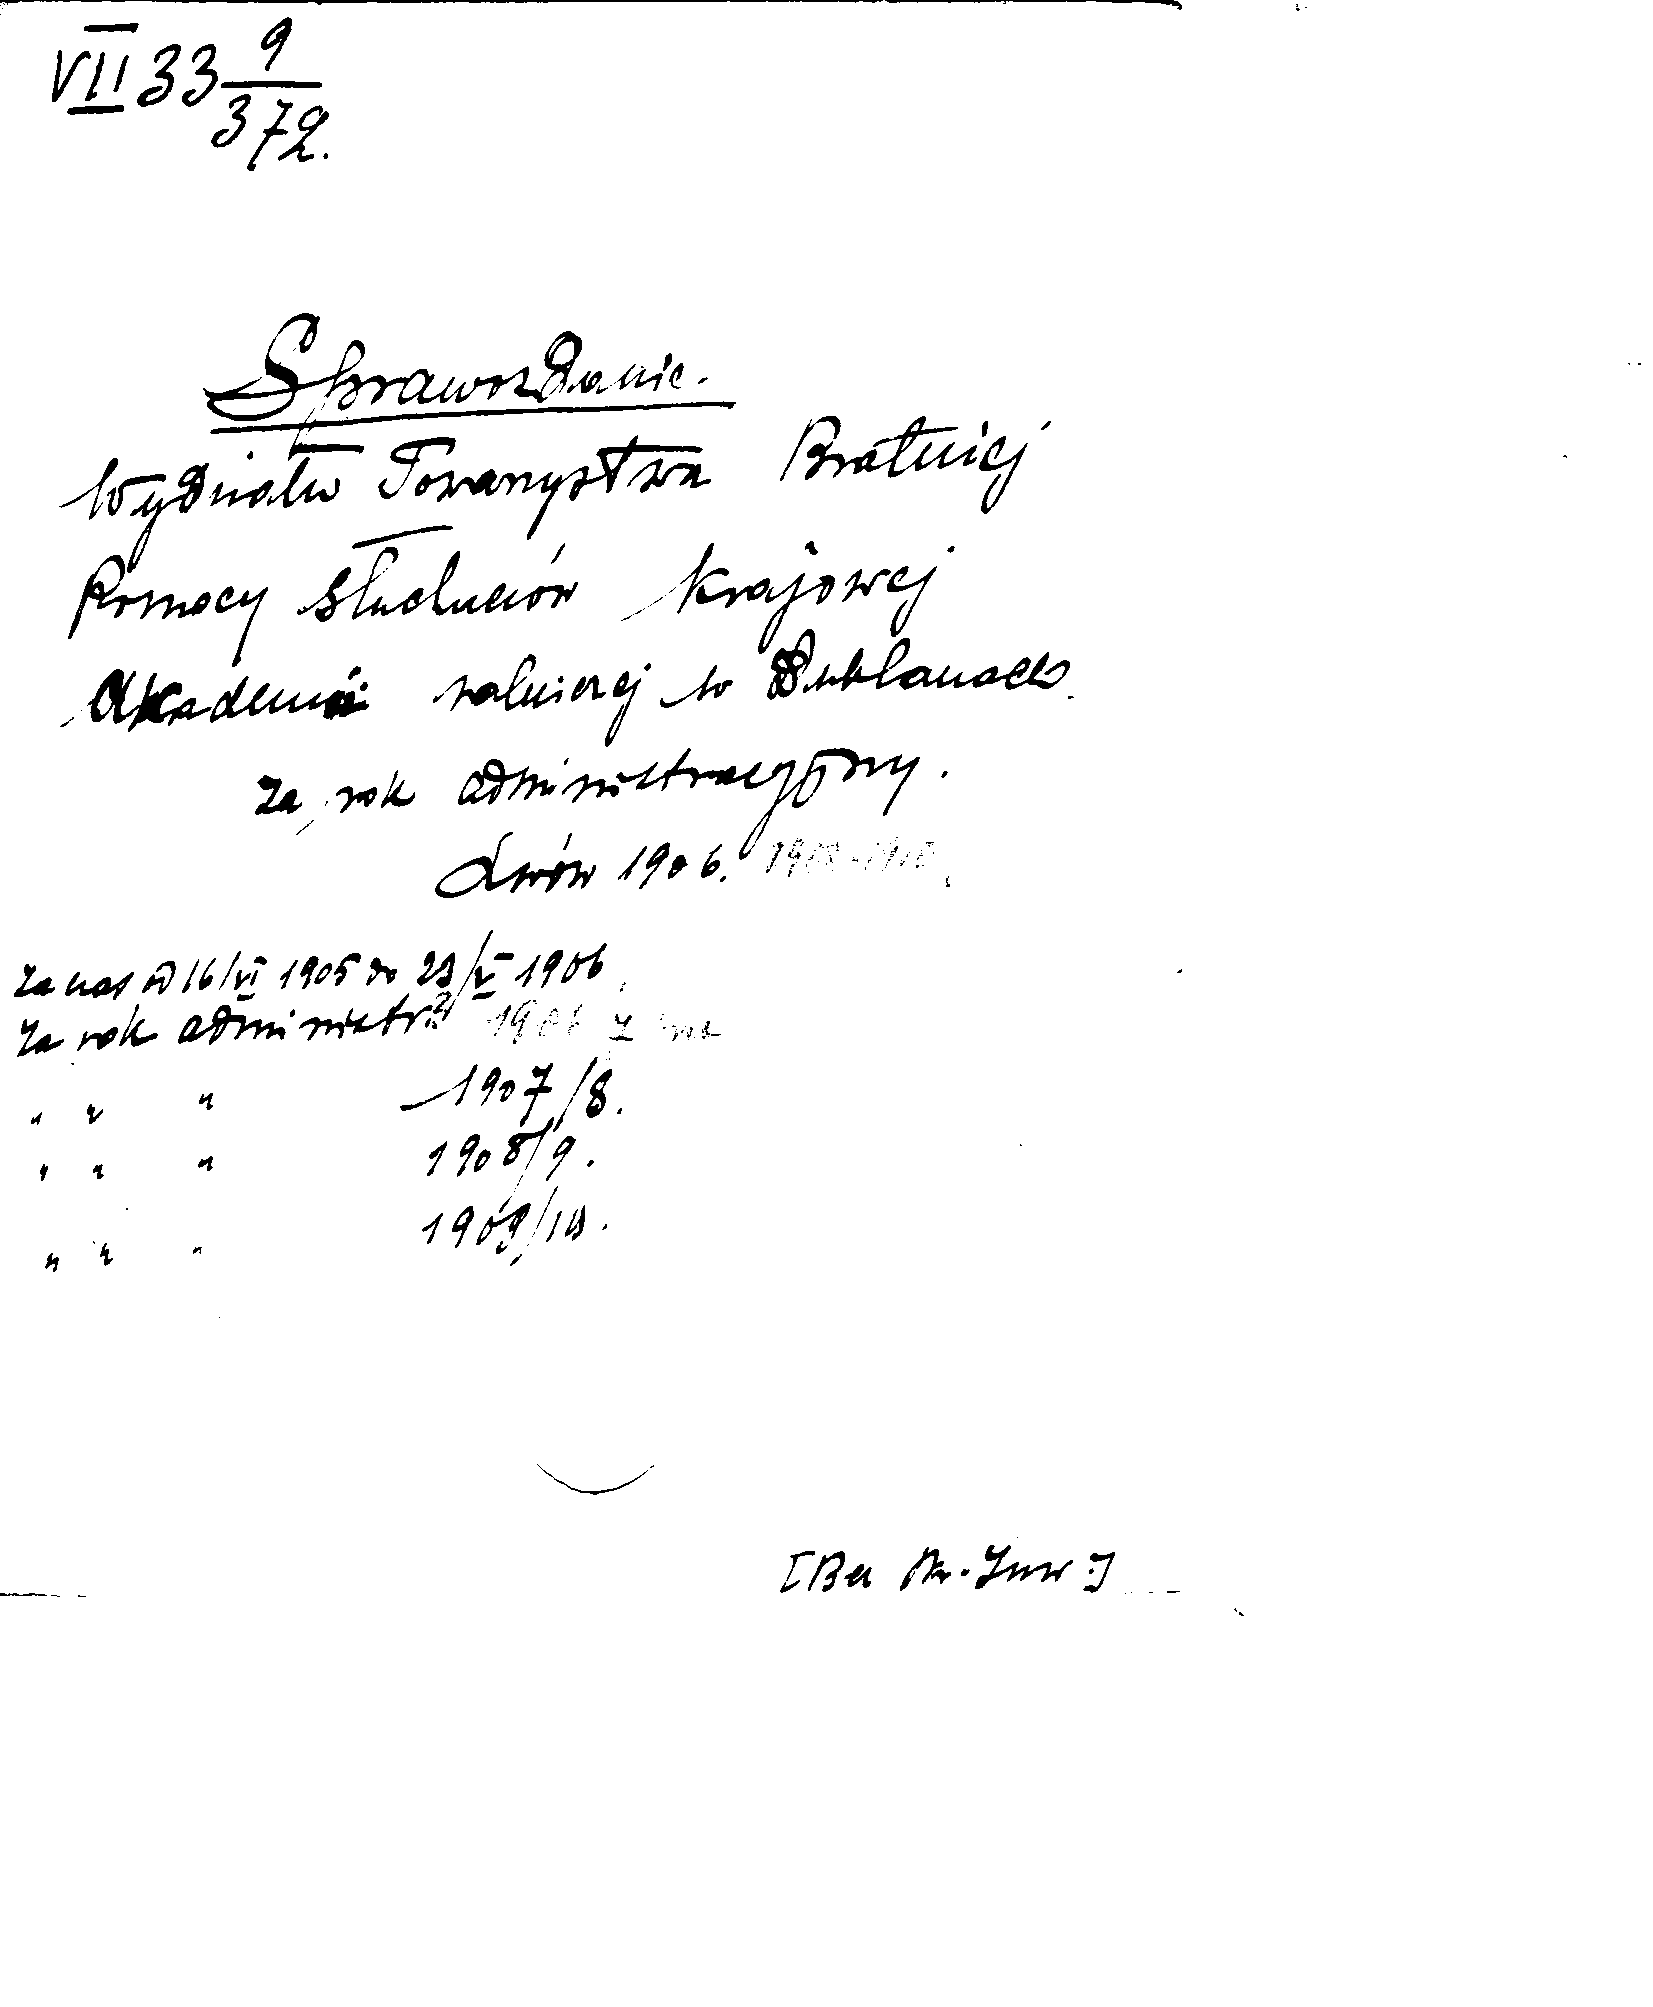 VII 33 9/372.
Sprawozdanie.
Wydziału Towarzystwa Bratniej
Pomocy słuchaczów Krajowej
Akademii rolniczej w Dublanach.
za rok administracyjny.
Lwów 1906. 1908-1910.
Za czas od 16/VI 1905 do 23/V 1906.
Za rok administr. 1906
" " " 1907/8.
" " " 1908/9.
" " " 1909/10.
[Bez Nr. Inw.]